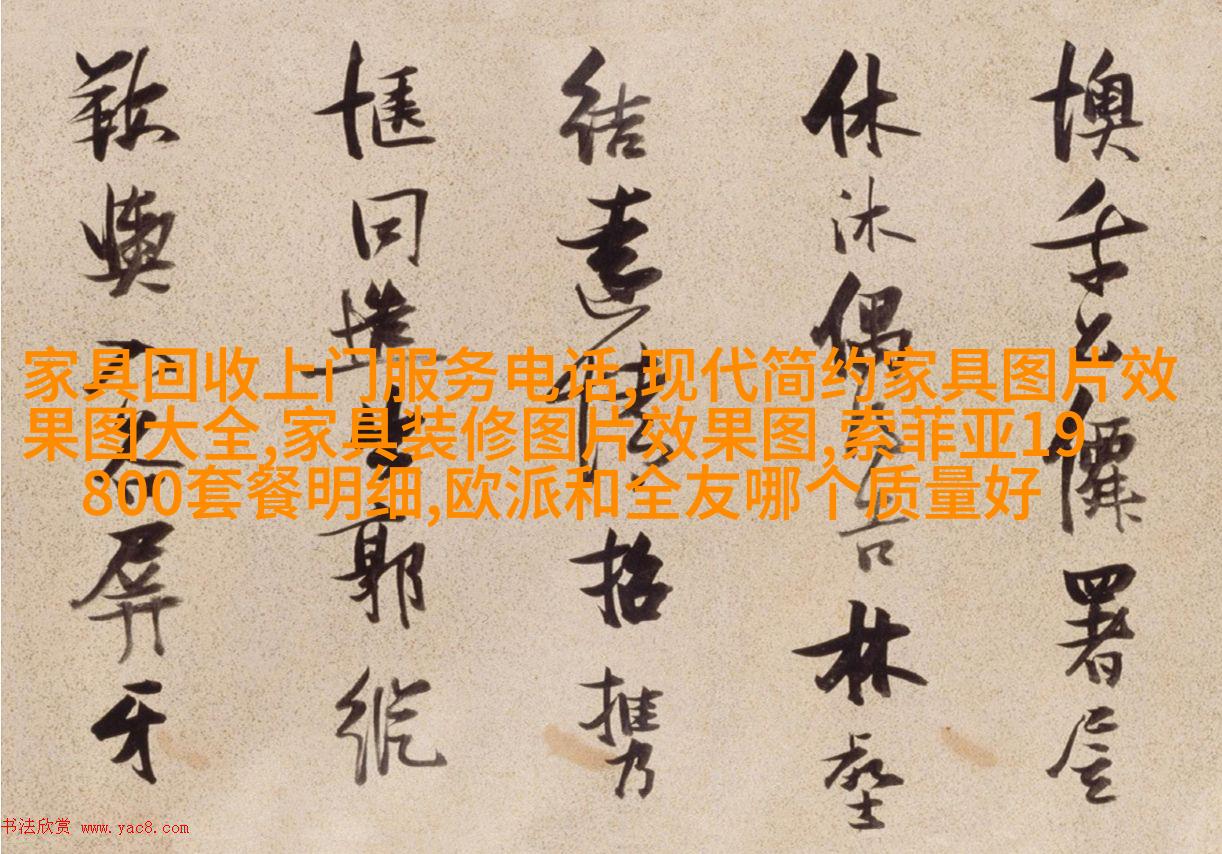 家具回收上门服务电话,现代简约家具图片效
果图大全,家具装修图片效果图,索菲亚19
800套餐明细,欧派和全友哪个质量好
署
休沐偶林壑
结遠情招携
愜同造東郭縱
屏牙
书法欣赏 www.yac8.com